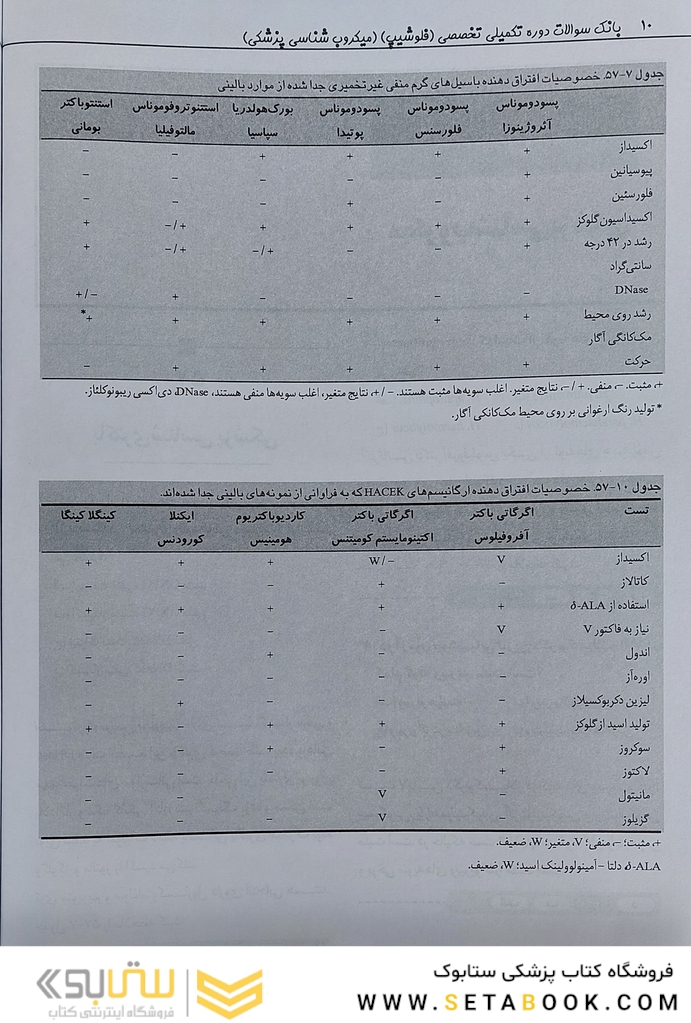 ۱۰ بانک سوالات دوره تکمیلی تخصصی (فلوشیپ) (میکروب شناسی پزشکی)
جدول ۷-۵۷. خصوصیات افتراق دهنده باسیل‌های گرم منفی غیرتخمیری جدا شده از موارد بالینی
پسودوموناس پسودوموناس پسودوموناس بورک‌هولدریا استنوتروفوموناس اسینتوباکتر
آئروژینوزا فلورسنس پوتیدا سپاسیا مالتوفیلیا بومانی
اکسیداز + + + + – –
پیوسیانین + – – – – –
فلورسئین + – + – – –
اکسیداسیون گلوکز + + + + +/– +
رشد در ۴۲ درجه + – – +/– +/– +
سانتی‌گراد
DNase – – – – + –/+
رشد روی محیط + + + + + +*
مک‌کانگی آگار
حرکت + + + + + –
+، مثبت. –، منفی. +/–، نتایج متغیر. اغلب سویه‌ها مثبت هستند. –/+، نتایج متغیر، اغلب سویه‌ها منفی هستند، DNase، دی‌اکسی ریبونوکلئاز.
* تولید رنگ ارغوانی بر روی محیط مک‌کانکی آگار.
جدول ۱۰-۵۷. خصوصیات افتراق دهنده ارگانیسم‌های HACEK که به فراوانی از نمونه‌های بالینی جدا شده‌اند.
تست اگرگاتی باکتر اگرگاتی باکتر کاردیوباکتریوم ایکنلا کینگلا کینگا
آفروفیلوس اکتینومایستم کومیتنس هومینیس کورودنس
اکسیداز V –/W + + +
کاتالاز – + – – –
استفاده از δ-ALA + + + + +
نیاز به فاکتور V V – – – –
اندول – – + – –
اوره‌آز – – – – –
لیزین دکربوکسیلاز – – – + –
تولید اسید از گلوکز + + + – +
سوکروز + – + – –
لاکتوز + – – – –
مانیتول – V – –
گزیلوز – V – – –
+، مثبت؛ –، منفی؛ V، متغیر؛ W، ضعیف.
δ-ALA، دلتا – آمینولوولینک اسید؛ W، ضعیف.
فروشگاه کتاب پزشکی ستابوک
WWW.SETABOOK.COM
ستابوک
فروشگاه اینترنتی کتاب